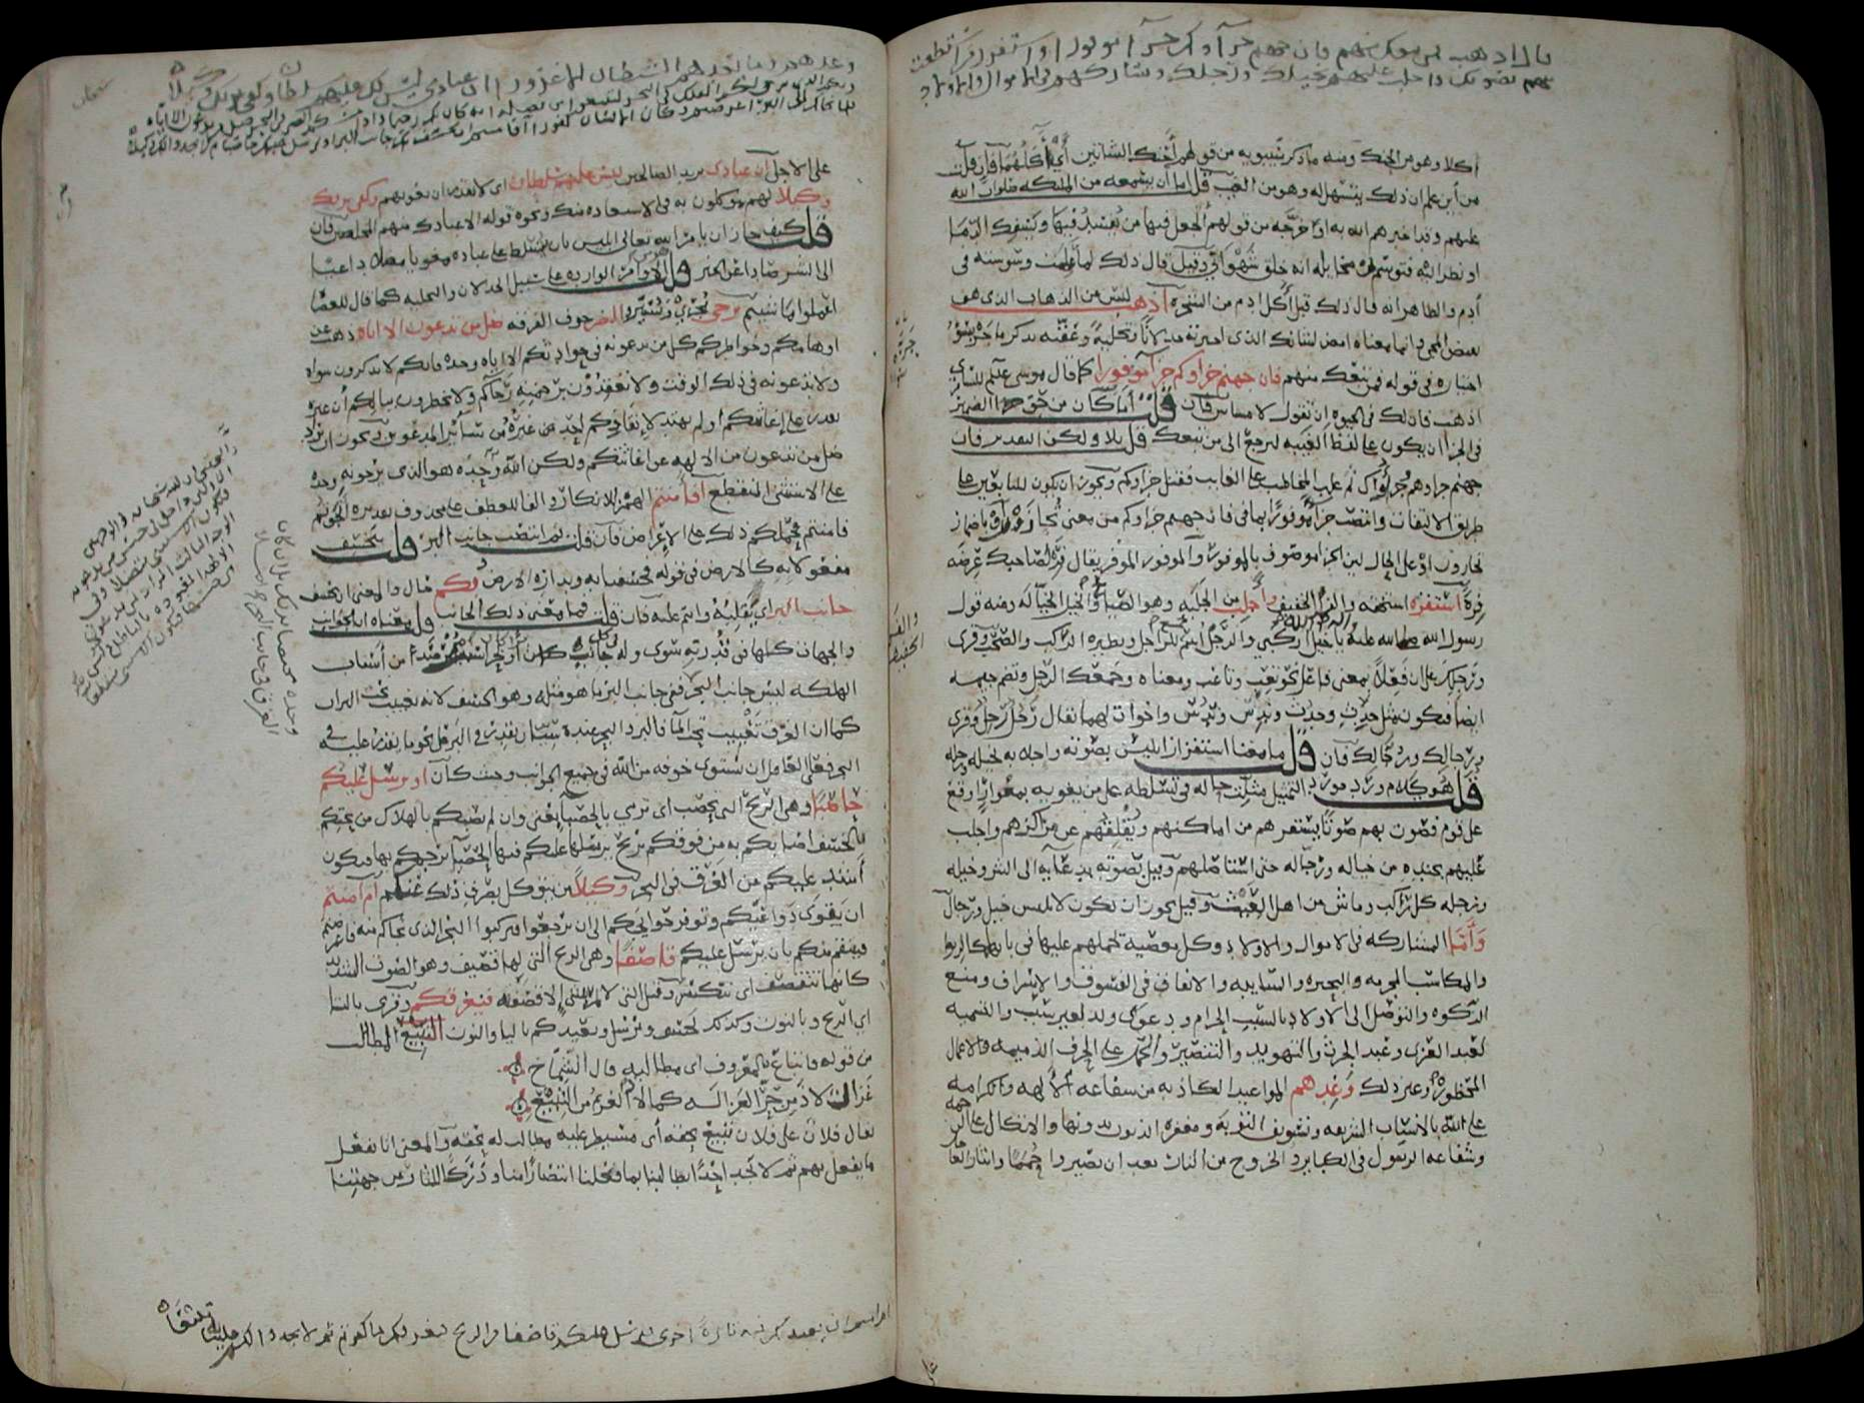 قال اذهب فمن تبعك منهم فان جهنم جزآؤكم جزآء موفورا واستفزز من استطعت
منهم بصوتك واجلب عليهم بخيلك ورجلك وشاركهم في الاموال والاولاد
اكلا وهو من الحنك ومنه ما ذكر سيبويه من قولهم احنك الشاتين أي آكلهما فان قلت
من أين علم ان ذلك يتسهل له وهو من الغيب قلت اما أن يسمعه من الملئكه صلوات الله
عليهم وقد اخبرهم الله به او خرجه من قولهم أتجعل فيها من يفسد فيها ويسفك الدما
او نظر اليه فتوسم في مخايله انه خلق شهواني وقيل قال ذلك لما عملت وسوسته في
آدم والظاهر انه قال ذلك قبل أكل ادم من الشجرة اذهب ليس من الذهاب الذي هو
نقيض المجي وانما معناه امض لشانك الذي اخترته خذلانا وتخلية وعقبه بذكر ما جره سوء
اختياره في قوله فمن تبعك منهم فان جهنم جزاوكم جزآ موفورا كما قال موسى عليلم للسامري
اذهب فان لك في الحيوه ان تقول لا مساس فان قلت اما كان من حق الضمير
في الجزا ان يكون على لفظ الغيبه ليرجع الى من تبعك قلت بلا ولكن التقدير فان
جهنم جزاوهم وجزاؤك ثم غلب المخاطب على الغايب فقيل جزاوكم ويجوز ان يكون للتابعين على
طريق الالتفات وانتصب جزآ موفورا بما في فان جهنم جزاوكم من معنى تجازون او باضمار
تجازون او على الحال لان الجزا موصوف بالموفور والموفور الموفر يقال فر لصاحبك عرضه
فرة استفزه استخفه والفز الخفيف واجلب من الجلبه وهو الصياح والخيل الخيالة ومنه قول
رسول الله صلى الله عليه يا خيل الله اركبي والرجل اسم جمع للراجل ونظيره الركب والصحب وقرى
ورجلك على ان فعلا بمعنى فاعل نحو تعب وتاعب ومعناه وجمعك الرجل وتضم جيمه
ايضا فيكون مثل حدث وحدث وندس وندس واخوات لهما يقال رجل رجل وقرى
ورجالك ورجالك فان قلت ما معنى استفزاز ابليس بصوته واجلابه بخيله ورجله
قلت هو كلام ورد مورد التمثيل مثلت حاله في تسلطه على من يغويه بمغوار وقع
على قوم فصوت بهم صوتا يستفزهم من اماكنهم ويقلقهم عن مراكزهم واجلب
عليهم بجنده من خياله ورجاله حتى استاصلهم وقيل بصوته بدعايه الى الشر وخيله
ورجله كل راكب وماش من اهل العيث وقيل يجوز ان يكون لابليس خيل ورجال
وأما المشاركه في الاموال والاولاد فكل معصية تحملهم عليها في بابهما كالربوا
والمكاسب المحرمه والبحيره والسايبه والانفاق في الفسوق والاسراف ومنع
الزكوه والتوصل الى الاولاد بالسبب الحرام ودعوى ولد لغير سبب والتسميه
بعبد العزى وعبد الحرث والتهويد والتنصير والحمل على الحرف الذميمه والاعمال
المحظوره وغير ذلك وعدهم المواعيد الكاذبه من شفاعه الالهه والكرامه
على الله بالانساب الشريفه وتسويف التوبه ومغفره الذنوب بدونها والاتكال على الرحمه
وشفاعه الرسول في الكباير والخروج من النار بعد ان يصيروا حمما وايثار العا
جزيه
والفز
الخفيف
وعدهم وما يعدهم الشيطان الا غرورا ان عبادي ليس لك عليهم سلطان وكفى بربك وكيلا
ربكم الذي يزجى لكم الفلك في البحر لتبتغوا من فضله انه كان بكم رحيما واذا مسكم الضر في البحر ضل من تدعون الا اياه
فلما نجاكم الى البر اعرضتم وكان الانسان كفورا أفامنتم ان يخسف بكم جانب البر او يرسل عليكم حاصبا ثم لا تجدوا لكم وكيلا
على الاجل ان عبادي يريد الصالحين ليس لك عليهم سلطان اي لا تقدر ان تغويهم وكفى بربك
وكيلا لهم يتوكلون به في الاستعاذه منك ونحوه قوله الا عبادك منهم المخلصين فان
قلت كيف جاز ان يامر الله تعالى ابليس بان يتسلط على عباده مغويا مضلا داعيا
الى الشر صادا عن الخير قلت هو من الاوامر الوارده على سبيل الخذلان والتخليه كما قال للعصاة
اعملوا ما شيتم يزجى يجري ويسير والضر خوف الغرق ضل من تدعون الا اياه ذهب عن
اوهامكم وخواطركم كل من تدعونه في حوادثكم الا اياه وحده فانكم لا تذكرون سواه
ولا تدعونه في ذلك الوقت ولا تعقدون برحمته رجاكم ولا تخطرون ببالكم أن غيره
يقدر على إغاثتكم أو لم يهتد لانقاذكم احد غيره من سائر المدعوين ويجوز ان يراد
ضل من تدعون من الالهه عن اغاثتكم ولكن الله وحده هو الذي ترجونه وحده
على الاستثنا المنقطع افأمنتم الهمزه للانكار والفا للعطف على محذوف تقديره انجوتم
فامنتم فحملكم ذلك على الاعراض فان قلت بم انتصب جانب البر قلت بيخسف
مفعولا به كالارض في قوله فخسفنا به وبداره الارض وبكم حال والمعنى ان يخسف
جانب البر اي يقلبه وانتم عليه فان قلت فما معنى ذكر الجانب قلت معناه ان الجوانب
والجهات كلها في قدرته سوى وله في كل جانب برا كان او بحرا سبب مرصد من أسباب
الهلكه ليس جانب البحر وحده مختصا بذلك بل ان كان الغرق في جانب البحر ففي جانب البر ما هو مثله وهو الخسف لانه تغييب تحت التراب
كما ان الغرق تغييب تحت الما فالبر والبحر عنده سيان يقدر في البر على نحو ما يقدر عليه في
البحر فعلى العاقل ان يستوي خوفه من الله في جميع الجوانب وحيث كان او يرسل عليكم
حاصبا وهي الريح التي تحصب اى ترمي بالحصبا يعني وان لم يصبكم بالهلاك من تحتكم
بالخسف اصابكم به من فوقكم بريح يرسلها عليكم فيها الحصبا يرجمكم بها فيكون
أشد عليكم من الغرق في البحر وكيلا من يتوكل بصرف ذلك عنكم ام امنتم
ان يقوي دواعيكم ويوفر حوايجكم الى ان ترجعوا فتركبوا البحر الذي نجاكم منه فاعرضتم
فينتقم منكم بان يرسل عليكم قاصفا وهى الريح التي لها قصيف وهو الصوت الشديد
كانها تتقصف اى تتكسر وقيل التى لا تمر بشي إلا قصفته فيغرقكم وقرى بالتا
اي الريح وبالنون وكذلك نخسف ونرسل ونعيدكم باليا والنون التبيع المطالب
من قوله فاتباع بالمعروف اى مطالبه قال الشماخ
كما لاذ الغريم من التبيع
يقال فلان على فلان تبيع بحقه أى مسيطر عليه مطالب له بحقه والمعنى انا نفعل
ما نفعل بهم ثم لا تجد احدا يطالبنا بما فعلنا انتصارا منا ودركا للثار من جهتنا
وحده مختصا بذلك بل ان كان
الغرق في جانب البحر
ام امنتم ان يعيدكم فيه تارة اخرى فيرسل عليكم قاصفا من الريح فيغرقكم بما كفرتم ثم لا تجدوا لكم علينا به تبيعا